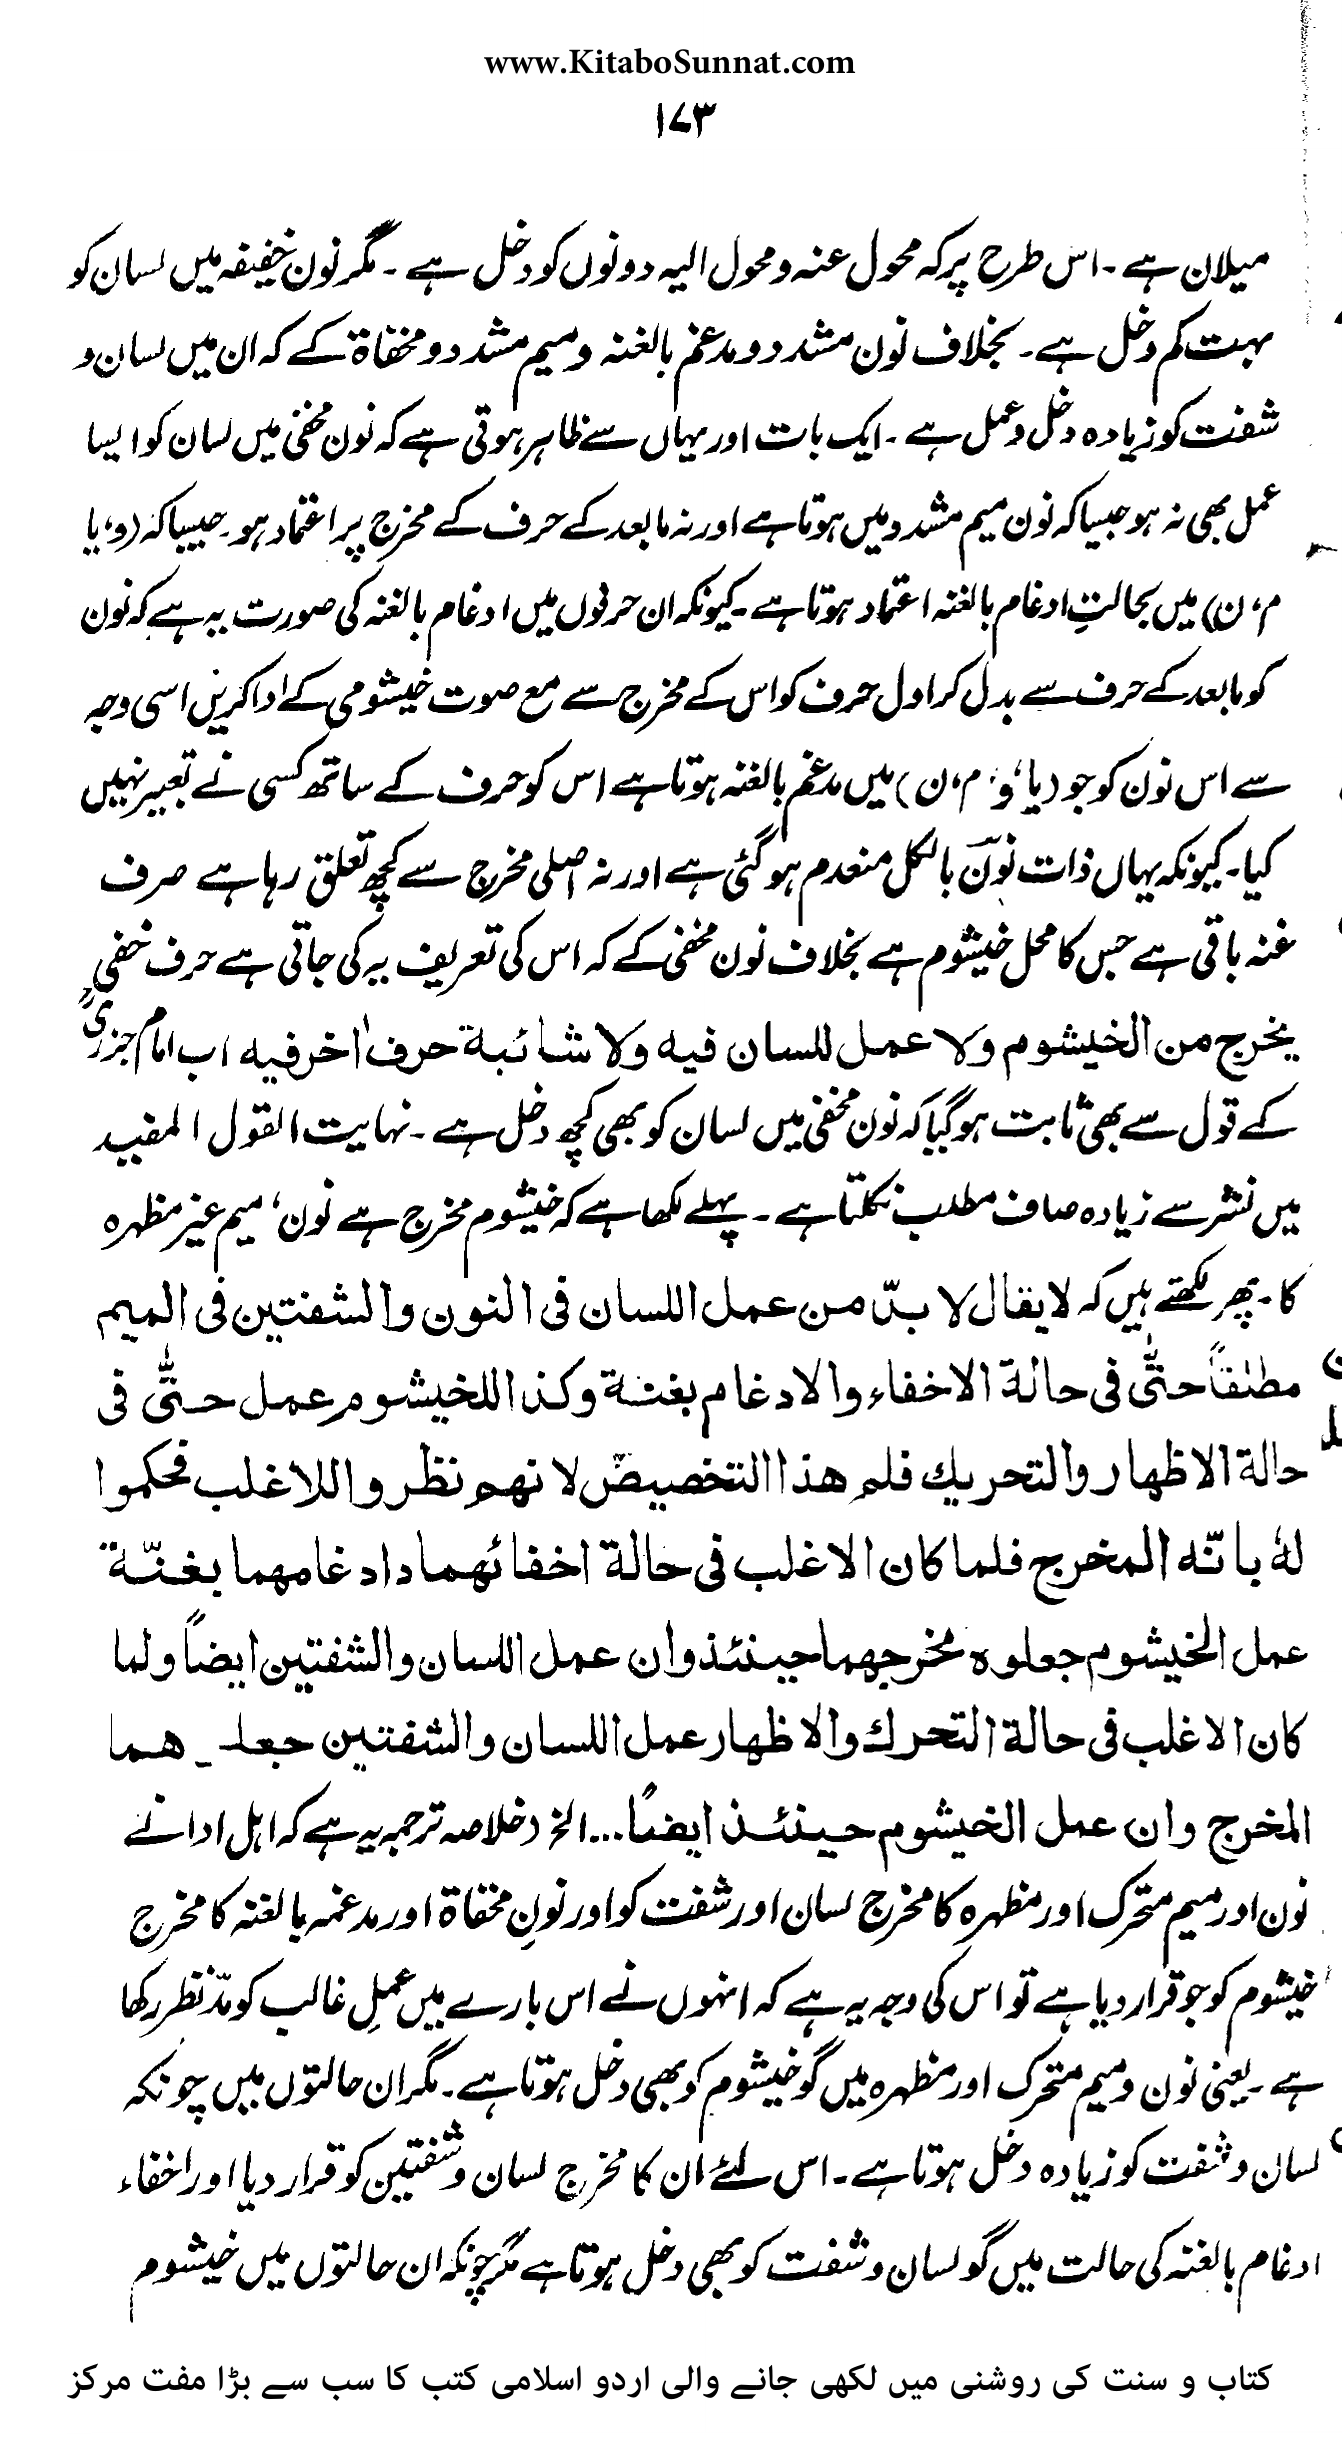 www.KitaboSunnat.com
۱۷۳
میلان ہے ۔ اس طرح پر کہ محول عنہ و محول الیہ دونوں کو دخل ہے ۔ مگر نون خفیفہ میں لسان کو
بہت کم دخل ہے ۔ بخلاف نون مشدد و مدغم بالغنہ و میم مشدد و مخفاۃ کے کہ ان میں لسان و
شفت کو زیادہ دخل و عمل ہے ۔ ایک بات اور یہاں سے ظاہر ہوتی ہے کہ نون مخفی میں لسان کو ایسا
عمل بھی نہ ہو جیسا کہ نون میم مشدد میں ہوتا ہے اور نہ مابعد کے حرف کے مخرج پر اعتماد ہو ۔ جیسا کہ (و، یا
م، ن) میں بحالتِ ادغام بالغنہ اعتماد ہوتا ہے ۔ کیونکہ ان حرفوں میں ادغام بالغنہ کی صورت یہ ہے کہ نون
کو مابعد کے حرف سے بدل کر اول حرف کو اس کے مخرج سے مع صوت خیشومی کے ادا کریں اسی وجہ
سے اس نون کو جو (یا، و، م، ن) میں مدغم بالغنہ ہوتا ہے اس کو حرف کے ساتھ کسی نے تعبیر نہیں
کیا ۔ کیونکہ یہاں ذات نون بالکل منعدم ہو گئی ہے اور نہ اصلی مخرج سے کچھ تعلق رہا ہے صرف
غنہ باقی ہے جس کا محل خیشوم ہے بخلاف نون مخفی کے کہ اس کی تعریف یہ کی جاتی ہے حرف خفی
یخرج من الخیشوم ولا عمل للسان فیہ ولا شائبۃ حرف اٰخر فیہ اب امام جزریؒ
کے قول سے بھی ثابت ہو گیا کہ نون مخفی میں لسان کو بھی کچھ دخل ہے ۔ نہایت القول المفید
میں نشر سے زیادہ صاف مطلب نکلتا ہے ۔ پہلے لکھا ہے کہ خیشوم مخرج ہے نون، میم غیر مظہرہ
کا ۔ پھر لکھتے ہیں کہ لا یقال لا بدّ من عمل اللسان فی النون والشفتین فی المیم
مطلقاً حتّٰی فی حالۃ الاخفاء والادغام بغنۃ وکذا للخیشوم عمل حتّٰی فی
حالۃ الاظهار والتحریك فلم هذا التخصیص لانهم نظروا للاغلب فحکموا
لهٗ بانّہ المخرج فلما کان الاغلب فی حالۃ اخفائهما وادغامهما بغنّۃ
عمل الخیشوم جعلوہ مخرجهما حینئذ وان عمل اللسان والشفتین ایضاً ولما
کان الاغلب فی حالۃ التحرك والاظهار عمل اللسان والشفتین جعلـ ـهما
المخرج وان عمل الخیشوم حینئذ ایضاً...الخ (خلاصہ ترجمہ یہ ہے کہ اہل ادا نے
نون اور میم متحرک اور مظہرہ کا مخرج لسان اور شفت کو اور نونِ مخفاۃ اور مدغمہ بالغنہ کا مخرج
خیشوم کو جو قرار دیا ہے تو اس کی وجہ یہ ہے کہ انہوں نے اس بارے میں عملِ غالب کو مدّنظر رکھا
ہے ۔ یعنی نون و میم متحرک اور مظہرہ میں گو خیشوم کو بھی دخل ہوتا ہے ۔ مگر ان حالتوں میں چونکہ
لسان و شفت کو زیادہ دخل ہوتا ہے ۔ اس لئے ان کا مخرج لسان و شفتین کو قرار دیا اور اخفاء
ادغام بالغنہ کی حالت میں گو لسان و شفت کو بھی دخل ہوتا ہے مگر چونکہ ان حالتوں میں خیشوم
کتاب و سنت کی روشنی میں لکھی جانے والی اردو اسلامی کتب کا سب سے بڑا مفت مرکز